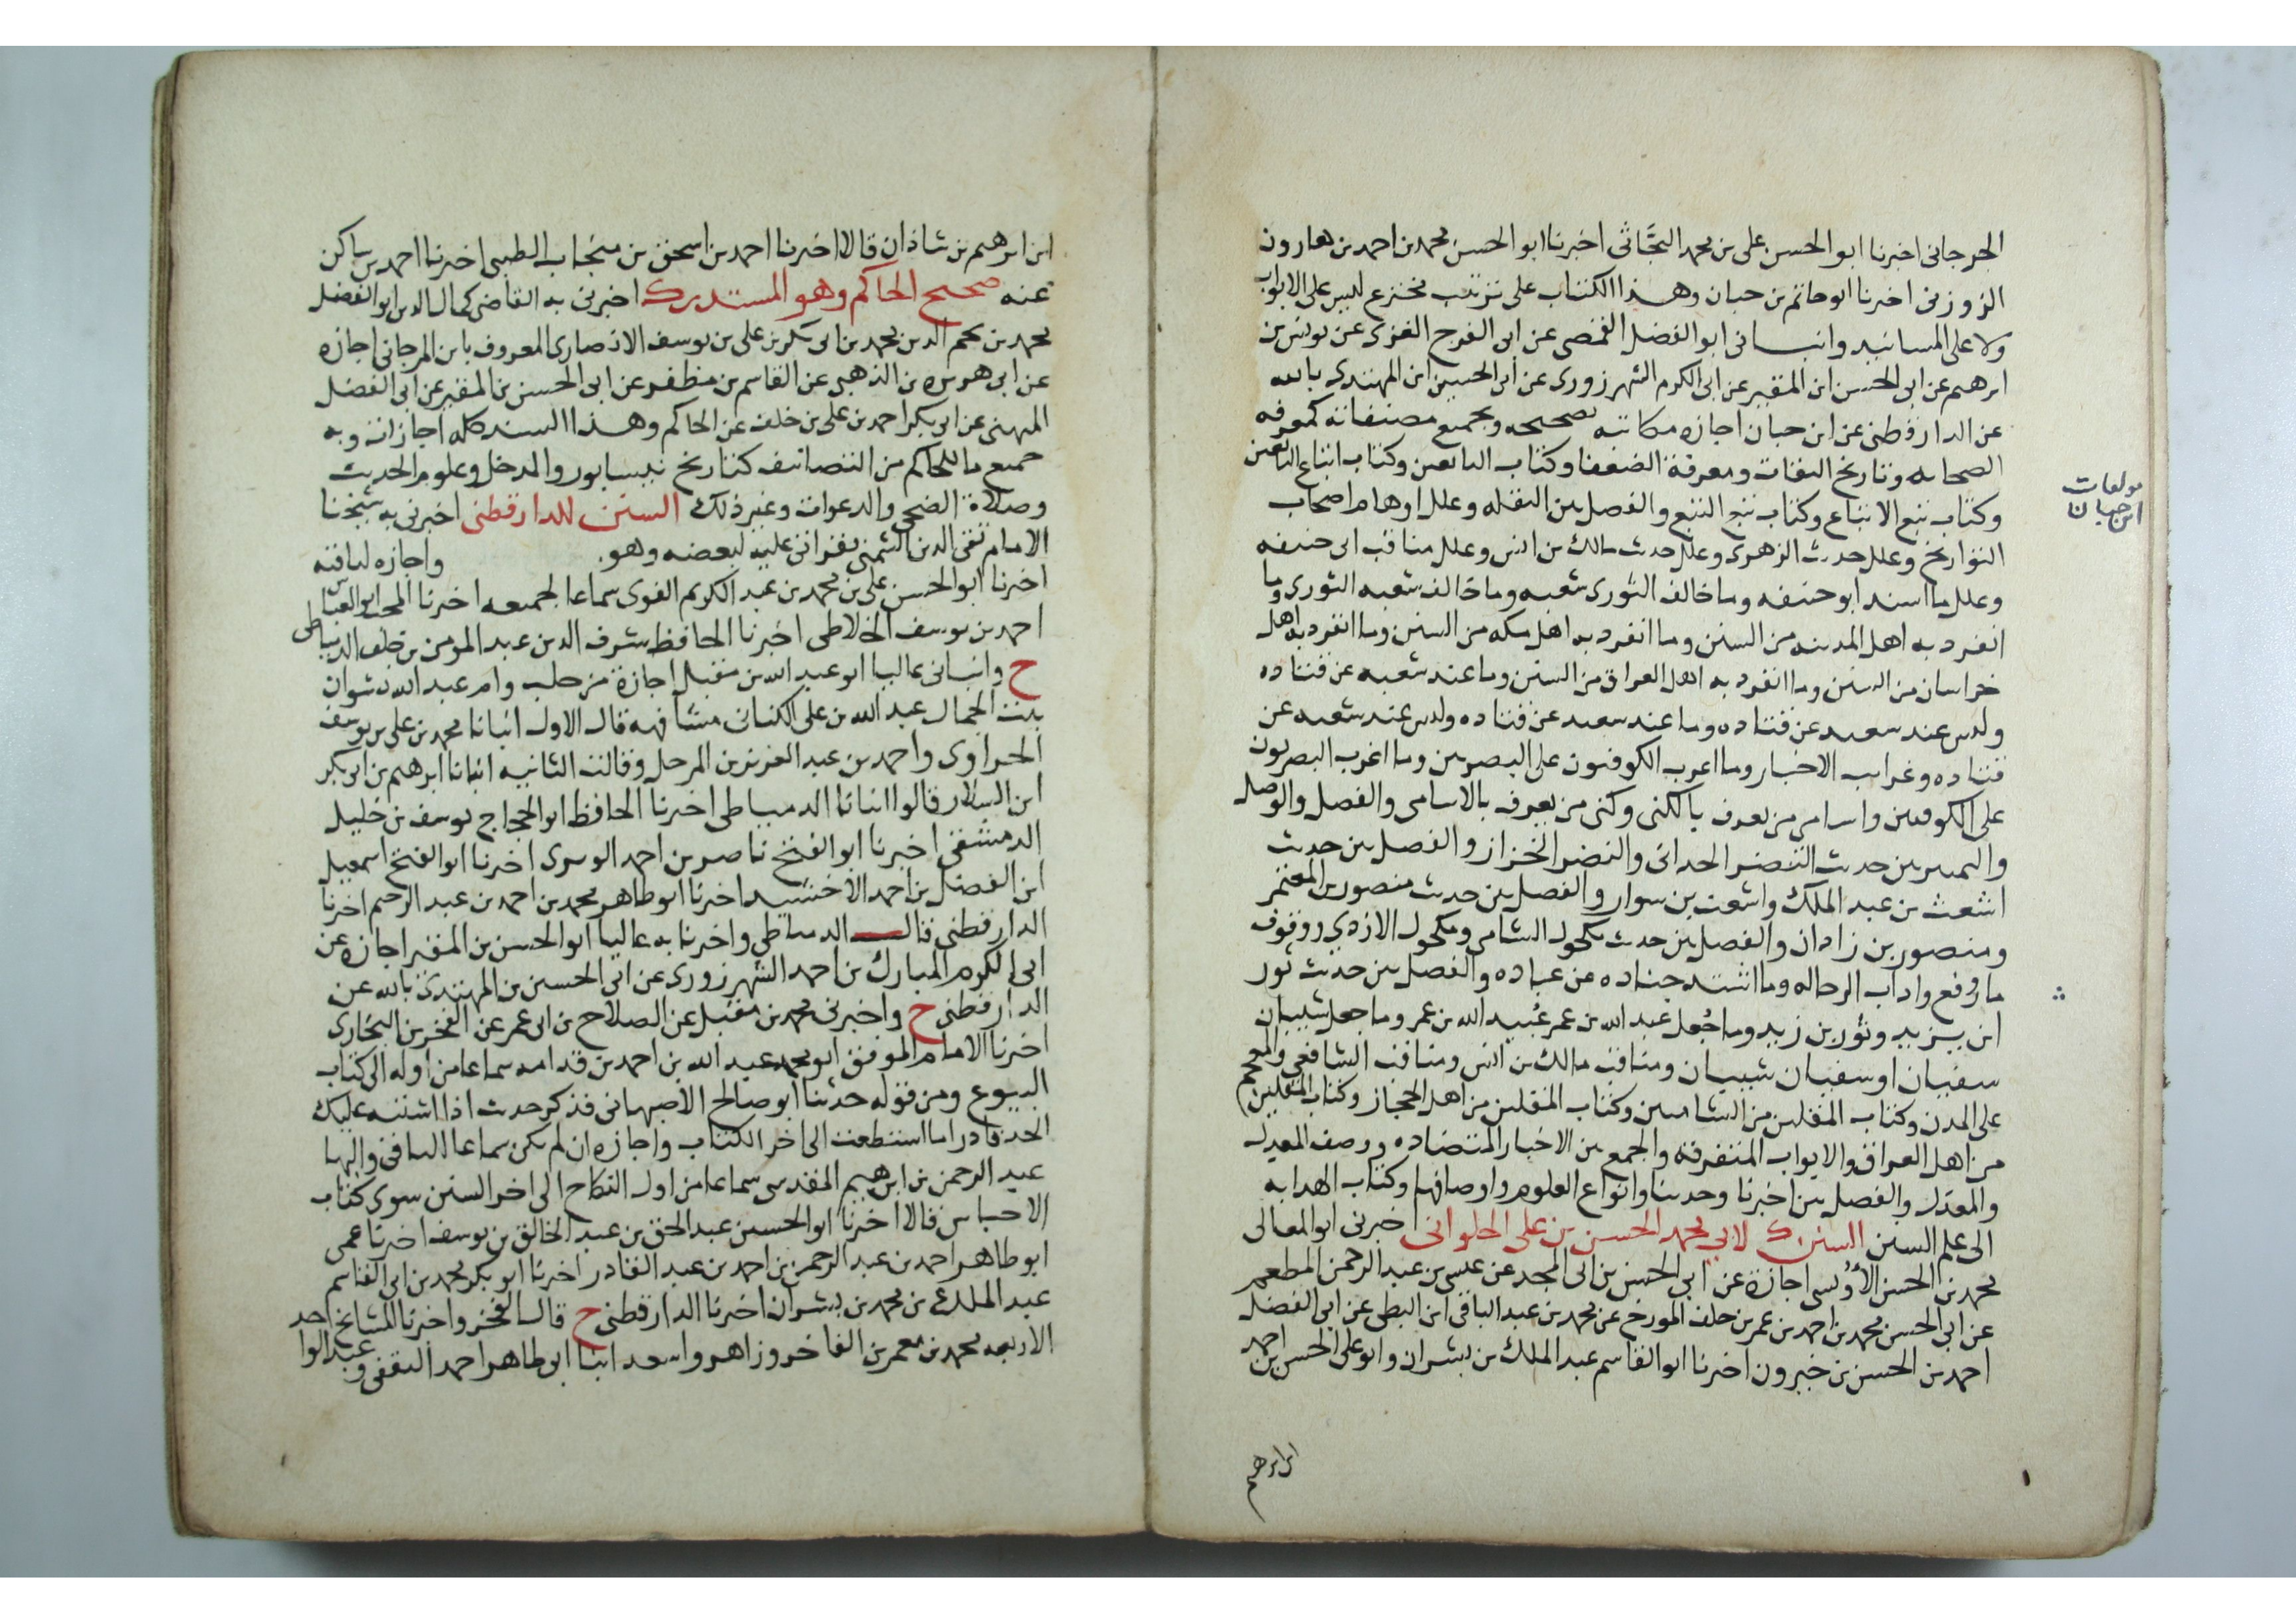 الجرجاني اخبرنا ابو الحسن علي بن محمد البحاثي اخبرنا ابو الحسن محمد بن احمد بن هارون
الزوزني اخبرنا ابو حاتم بن حبان وهذا الكتاب على ترتيب مخترع ليس على الابواب
ولا على المسانيد وانباني ابو الفضل القمصي عن ابي الفرج الغزي عن يونس بن
ابرهيم عن ابي الحسن ابن المقير عن ابي الكرم الشهرزوري عن ابي الحسين ابن المهتدي بالله
عن الدارقطني عن ابن حبان اجازه مكاتبه بصحيحه وبجميع مصنفاته كمعرفه
الصحابه وتاريخ الثقات ومعرفة الضعفا وكتاب التابعين وكتاب اتباع التابعين
مولفات
ابن حبان
وكتاب تبع الاتباع وكتاب تبع التبع والفصل بين النقله وعلل اوهام اصحاب
التواريخ وعلل حديث الزهري وعلل حديث مالك بن انس وعلل مناقب ابي حنيفه
وعلل ما اسند ابو حنيفه وما خالف الثوري شعبه وما خالف شعبه الثوري وما
انفرد به اهل المدينه من السنن وما انفرد به اهل مكه من السنن وما انفرد به اهل
خراسان من السنن وما انفرد به اهل العراق من السنن وما عند شعبه عن قتاده
وليس عند سعيد عن قتاده وما عند سعيد عن قتاده وليس عند شعبه عن
قتاده وغرايب الاخبار وما اغرب الكوفيون على البصريين وما اغرب البصريون
على الكوفيين واسامي من يعرف بالكنى وكنى من يعرف بالاسامي والفصل والوصل
والتمييز بين حديث النضر الحداني والنضر الخزاز والفصل بين حديث
اشعث بن عبد الملك واشعث بن سوار والفصل بين حديث منصور بن المعتمر
ومنصور بن زاذان والفصل بين حديث مكحول الشامي ومكحول الازدي ووقوف
ما رفع واداب الرحاله وما اسند جناده عن عباده والفصل بين حديث ثور
ابن يزيد وثور بن زيد وما جُعل عبد الله بن عمر عُبيد الله بن عمر وما جعل شيبان
سفيان او سفيان شيبان ومناقب مالك بن انس ومناقب الشافعي والمعجم
على المدن وكتاب المقلين من الشاميين وكتاب المقلين من اهل الحجاز وكتاب المقلين
من اهل العراق والابواب المتفرقة والجمع بين الاخبار المتضاده ووصف المعدل
والمعدل والفصل بين اخبرنا وحدثنا وانواع العلوم واوصافها وكتاب الهدايه
الى علم السنن السنن لابي محمد الحسن بن علي الحلواني اخبرني ابو المعالي
محمد بن الحسن الاوسي اجازة عن ابي الحسن بن ابي المجد عن عيسى بن عبد الرحمن المطعم
عن ابي الحسن محمد بن احمد بن عمر بن خلف المورخ عن محمد بن عبد الباقي ابن البطي عن ابي الفضل
احمد بن الحسن بن خيرون اخبرنا ابو القاسم عبد الملك بن بشران وابو علي الحسن بن احمد
ابن ابرهيم
ابن ابرهيم بن شاذان قالا اخبرنا احمد بن اسحق بن منجاب الطيبي اخبرنا احمد بن
عنه صحيح الحاكم وهو المستدرك اخبرني به القاضي كمال الدين ابو الفضل
محمد بن نجم الدين محمد بن ابي بكر بن علي بن يوسف الانصاري المعروف بابن المرجاني اجازه
عن ابي هريره بن الذهبي عن القاسم بن مظفر عن ابي الحسن بن المقير عن ابي الفضل
الميهني عن ابي بكر احمد بن علي بن خلف عن الحاكم وهذا السند كله اجازات وبه
جميع ما للحاكم من التصانيف كتاريخ نيسابور والمدخل وعلوم الحديث
وصلاة الضحى والدعوات وغير ذلك السنن للدارقطني اخبرني به شيخنا
الامام تقي الدين الشمني بقراتي عليه لبعضه وهو. واجازه لباقيه
اخبرنا ابو الحسن علي بن محمد بن عبد الكريم الفوي سماعا لجميعه اخبرنا المحب ابو العباس
احمد بن يوسف الخلاطي اخبرنا الحافظ شرف الدين عبد المومن بن خلف الدمياطي
ح وانباني عاليا ابو عبد الله بن مقبل اجازة من حلب وام عبد الله نشوان
بنت الجمال عبد الله بن علي الكناني مشافهه قال الاول انبانا محمد بن علي بن يوسف
الحراوي واحمد بن عبد العزيز بن المرحل وقالت الثانيه انبانا ابرهيم بن ابي بكر
ابن السلار قالوا انبانا الدمياطي اخبرنا الحافظ ابو الحجاج يوسف بن خليل
الدمشقي اخبرنا ابو الفتح ناصر بن احمد الويرى اخبرنا ابو الفتح اسمعيل
ابن الفضل بن احمد الاخشيد اخبرنا ابو طاهر محمد بن احمد بن عبد الرحيم اخبرنا
الدارقطني قال الدمياطي واخبرنا به عاليا ابو الحسن بن المقير اجازة عن
ابي الكرم المبارك بن احمد الشهرزوري عن ابي الحسين بن المهتدي بالله عن
الدارقطني ح واخبرني محمد بن مقبل عن الصلاح بن ابي عمر عن الفخر بن البخاري
اخبرنا الامام الموفق ابو محمد عبد الله بن احمد بن قدامه سماعا من اوله الى كتاب
البيوع ومن قوله حدثنا ابو صالح الاصبهاني فذكر حديث اذا اشتبه عليك
الحد فادرا ما استطعت الى اخر الكتاب واجازه ان لم يكن سماعا للباقي والبها
عبد الرحمن بن ابرهيم المقدسي سماعا من اول النكاح الى اخر السنن سوى كتاب
الاحباس قالا اخبرنا ابو الحسين عبد الحق بن عبد الخالق بن يوسف اخبرنا عمي
ابو طاهر احمد بن عبد الرحمن بن احمد بن عبد القادر اخبرنا ابو بكر محمد بن ابي القاسم
عبد الملك بن محمد بن بشران اخبرنا الدارقطني ح قال الفخر واخبرنا المشايخ
الاربعه محمد بن معمر بن الفاخر وزاهر واسعد ابنا ابي طاهر احمد الثقفي و عبد الواحد